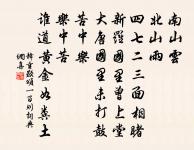 南山雲
北山雨
四七二三面相睹
新羅國里曾上堂
大唐國里未打鼓
苦中樂
樂中苦
誰道黃金如糞土
釋重顯頌一百則詞典
網喜